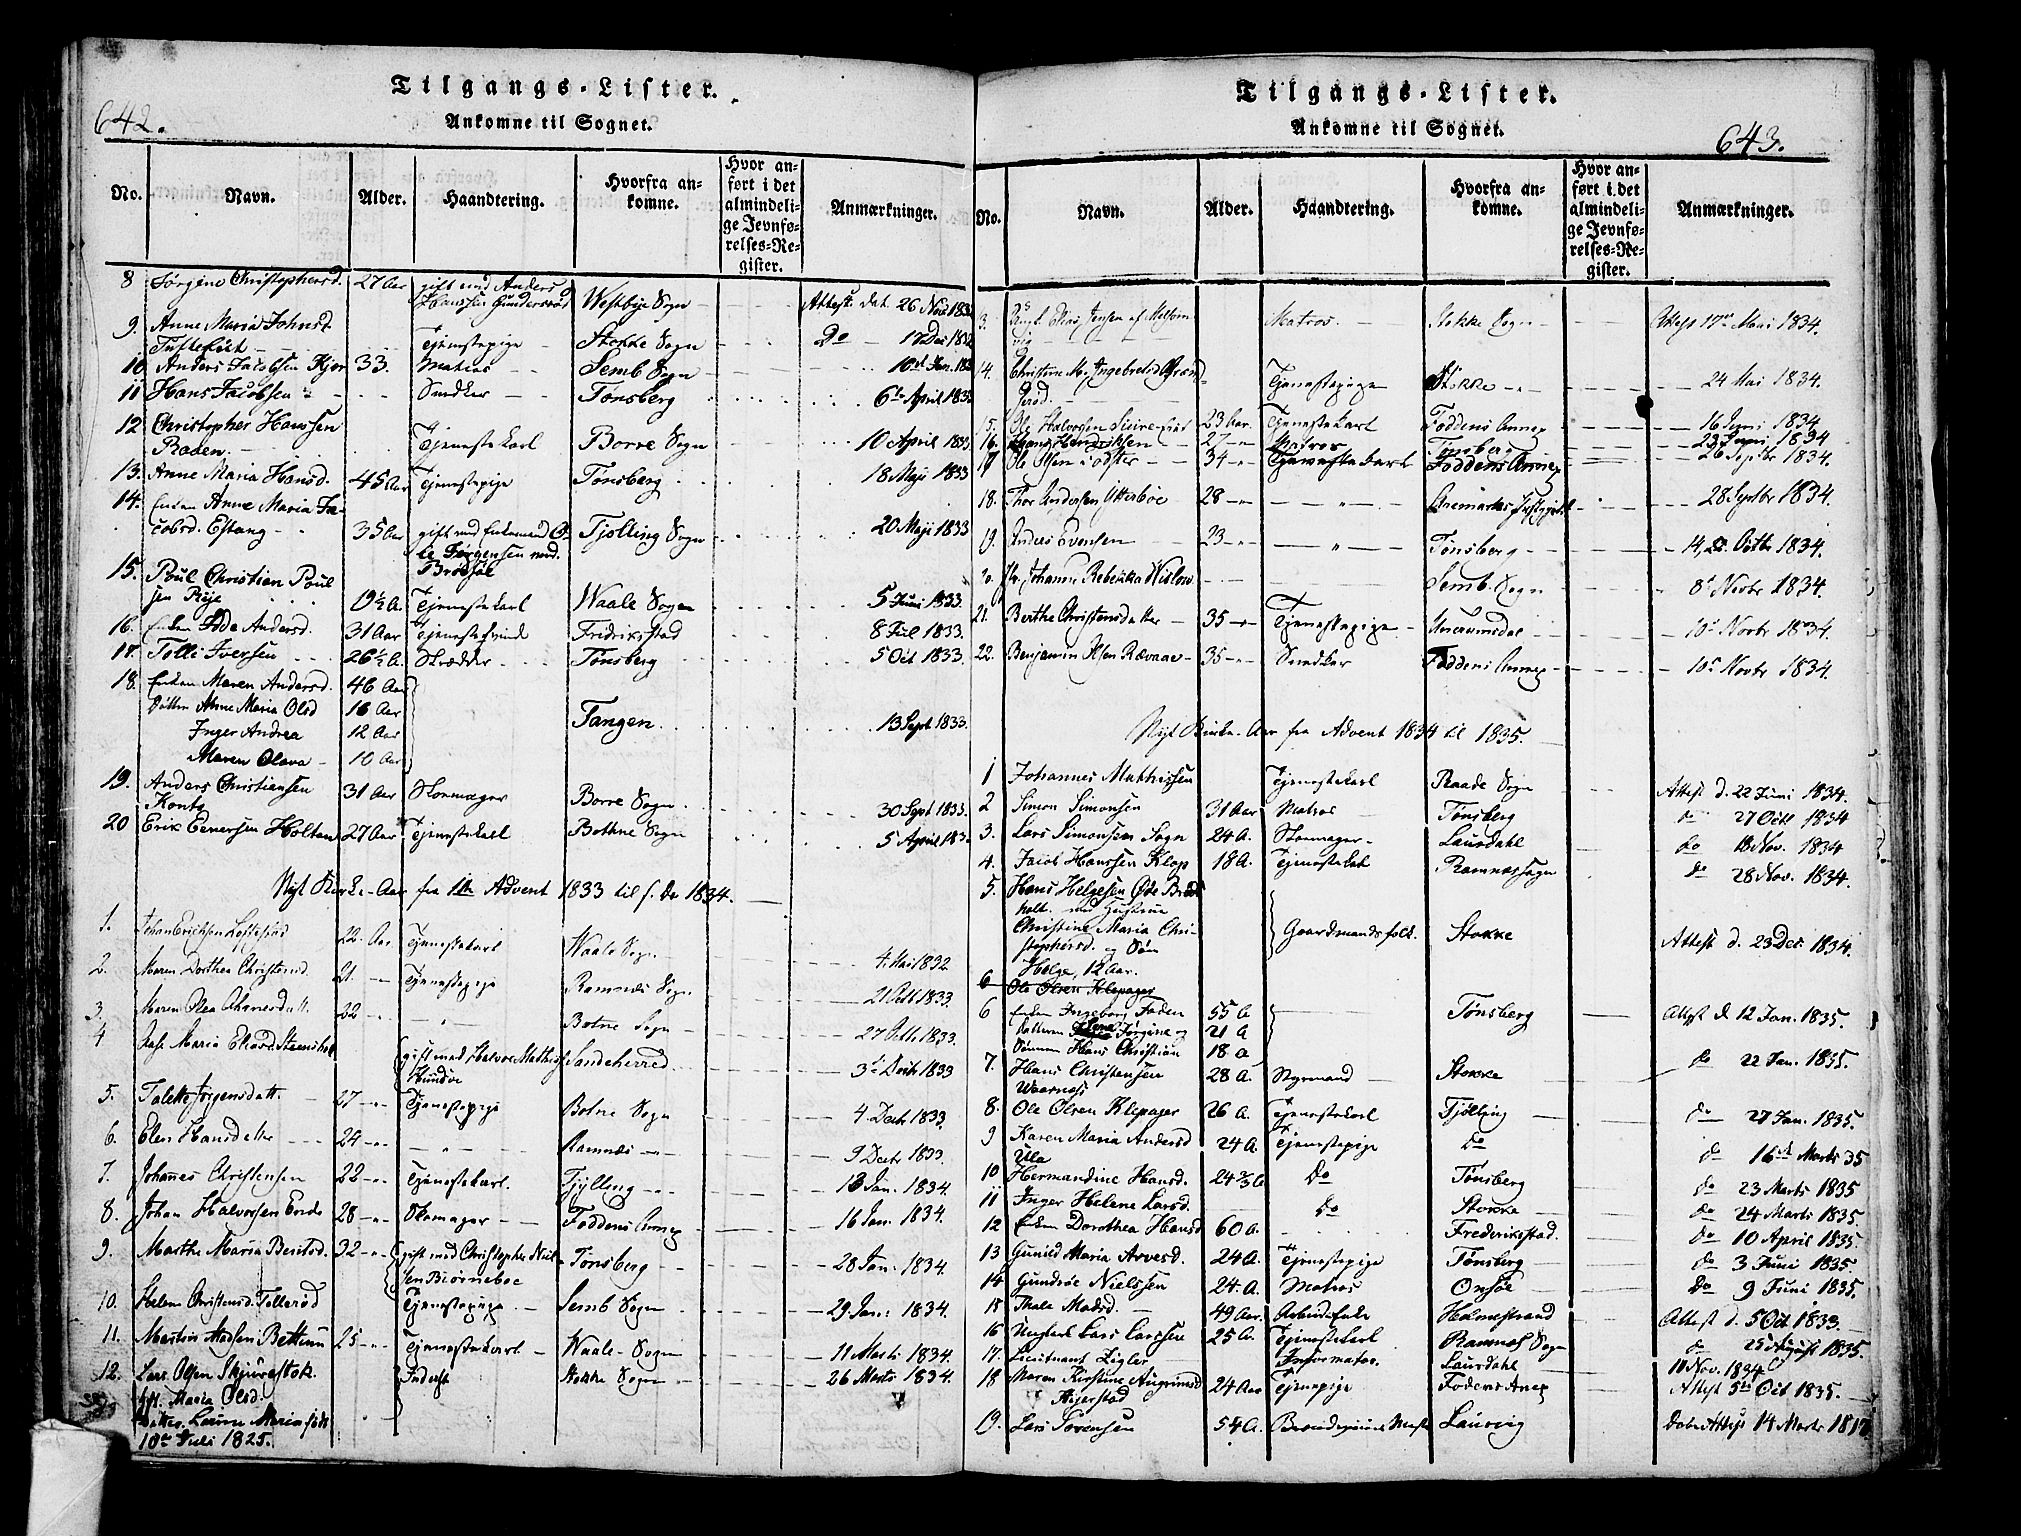 642.
Tilgangs-Lister.
Ankomne til Sognet.
No. Navn. Alder. Haandtering. Hvorfra ankomne. Hvor anført i det almindelige Jevnførelses-Register. Anmærkninger.
8 Jørgine Christophersd. 27 Aar gift med Anders
Hanssen Gundersrød Westbye Sogn Attest dat. 26 Nov 183
9. Anne Maria Johnsd.
Tjenestepige Stokke Sogn Do 17 Dec 1832
10 Anders Jacobsen 33. Semb Sogn 10 Jan. 183
11 Hans Jacobsen Snedker Tønsberg 6te April 1833
12 Christopher Hanssen
Raden. Tjenestekarl Borre Sogn 10 April 1833.
13. Anne Maria Hansd. 45 Aar Tjenestepige Tønsberg 18 Maji 1833
14. Enken Anne Maria Ja-
cobsd. Eftang 35 Aar gift med Enkemand O-
le Jørgensen ned. Tjølling Sogn 20 Maji 1833
15. Poul Christian Poul
sen 19½ A. Tjenestekarl Waale Sogn 5 Juni 1833.
16. Enken Andersd. 31 Aar Tjenestekvinde Fridriksstad 8 Jul 1833.
17. Tolli Iversen 26½ A. Skrædder Tønsberg 5 Oct 1833.
18. Enken Maren Andersd. 46 Aar
Døttre Anne Maria Olsd 16 Aar
Inger Andrea 12 Aar Tangen. 13 Sept 1833.
Maren Olava 10 Aar
19. Anders Christiansen
31 Aar Skomager Borre Sogn 30 Sept 1833.
20 Erik Evensen Holtan 27 Aar Tjenestekarl Bothne Sogn 5 April 183
Nyt Kirke-Aar fra 1ste Advent 1833 til s. Do 1834.
1. Johan Erichsen 22. Aar Tjenestekarl Waale Sogn 4. Mai 1832
2. Maren Dorthea Christensd. 21. Tjenestepige Ramnæs Sogn 21 Octb 1833.
3. Maren Olea 22 Botne Sogn 27 Octb 1833.
4 Maria gift med Halvor Mathiss. Sandeherred 3 Decb 1833
5. Talette Jørgensdatt. 27 Tjenestepige Botne Sogn 4 Decbr 1833.
6. Elen Hansdatter 24 Ramnæs 9 Decbr 1833.
7. Johannes Christensen 22 Tjenestekarl. Tjølling 13 Jan. 1834.
8. Johan Halvorsen 28 Skomager Foddens Annex 16 Jan. 1834.
9. Marthe Maria Bentsd. 32 gift med Christopher Niel-
sen Biørneboe Tønsberg 28 Jan. 1834.
10. Helene Christensd. Tollerød Tjenestepige Semb Sogn 29 Jan. 1834.
11. Martin Madsen 25 Tjenestekarl Waale Sogn 11 Marts 1834.
12. Lars Olsen Inderst Stokke Sogn 26 Marts 1834.
Maria Olsd.
Datter Larine Maria født
10de Juli 1825.
643.
Tilgangs-Lister.
Ankomne til Sognet.
No. Navn. Alder. Haandtering. Hvorfra ankomne. Hvor anført i det almindelige Jevnførelses-Register. Anmærkninger.
3. Ungk. Elias Jensen af Melsom
vig Matros. Stokke Sogn Attest 17de Mai 1834.
14. Christine M. Ingebretsd
Tjenestepige Stokke 24 Mai 1834.
15. Ole Halvorsen 23 Aar. Tjenestekarl Foddens Annex 16 Juni 1834
16. Hans Hendriksen 27 Matros Tønsberg 23 Juni 1834
17 Ole Olsen 34 Tjenestekarl Foddens Annex 26 Septbr 1834.
18. Thor Andersen Utterbøe 28 28 Septbr 1834.
19. Anders Svensen 23 Tønsberg 14 Octbr 1834.
20. Johanne Rebekka Wislow Semb Sogn 8 Novbr 1834.
21. Berthe Christensdatter 35 Tjenestepige 10 Novbr 1834.
22. Benjamin Olsen Rævaae 35 Snedker Foddens Annex 10 Novbr 1834.
Nyt Kirke-Aar fra Advent 1834 til 1835.
1 Johannes Matthissen Tjenestekarl Raade Sogn Attest d. 22 Juni 1834.
2 Simon Simonsen 31 Aar Matros Tønsberg do 27 Oct 1834
3. Lars Simonsen Sogn 24 A. Skomager Laurdahl do 18 Nov. 1834
4. Jacob Hanssen Klop 18 A. Tjenestekarl Ramnæs Sogn do 28 Nov. 1834.
5. Hans Helgesen Øde
holt. med Hustrue
Christine Maria Chri- Gaardmandsfolk. Stokke Attest d. 23 Dec. 1834.
stophersd. og Søn
Helge, 12 Aar.
6 Ole Olsen Klepager
6 Enken Ingeborg Foden 55 A Tønsberg Attest d 12 Jan. 1835.
Datteren Jørgine og 21 A
Sønnen Hans Christian 18 A
7. Hans Christensen
Waarnæs 28 A. Styrmand Stokke do 22 Jan. 1835.
8. Ole Olsen Klepager 26 A. Tjenestekarl Tjølling do 27 Jan. 1835.
9 Karen Maria Andersd
Ula 24 A. Tjenestepige do do 16de Marts 35
10 Hermandine Hansd. 24 Do Tønsberg do 23 Marts 1835
11 Inger Helene Larsd. do Stokke do 24 Marts 1835
12 Enken Dorothea Hansd 60 A. Frederiksstad. do 10 April 1835.
13 Gunild Maria Arvesd. 24 A. Tjenestepige Tønsberg do 3 Juni 1835
14 Gundroe Nielssen 24. A. Matros Onsøe do 9 Juni 1835.
15 Thale Madsd. 49 Aar. Holmestrand Attest d. 5 Oct 1833.
16 Ungkarl Lars Larssen 25 A. Tjenestekarl Ramnæs Sogn do 25 August 1835.
17. Lieutnant Zigler Informator. Laurdahl 11 Nov. 1834
18 Maren Kirstine
24 Aar Tjenepige Fodens Anex Attest 5te Oct 1835.
19. Lars Sørensen 54 A. Laurvig 14 Marts 1817